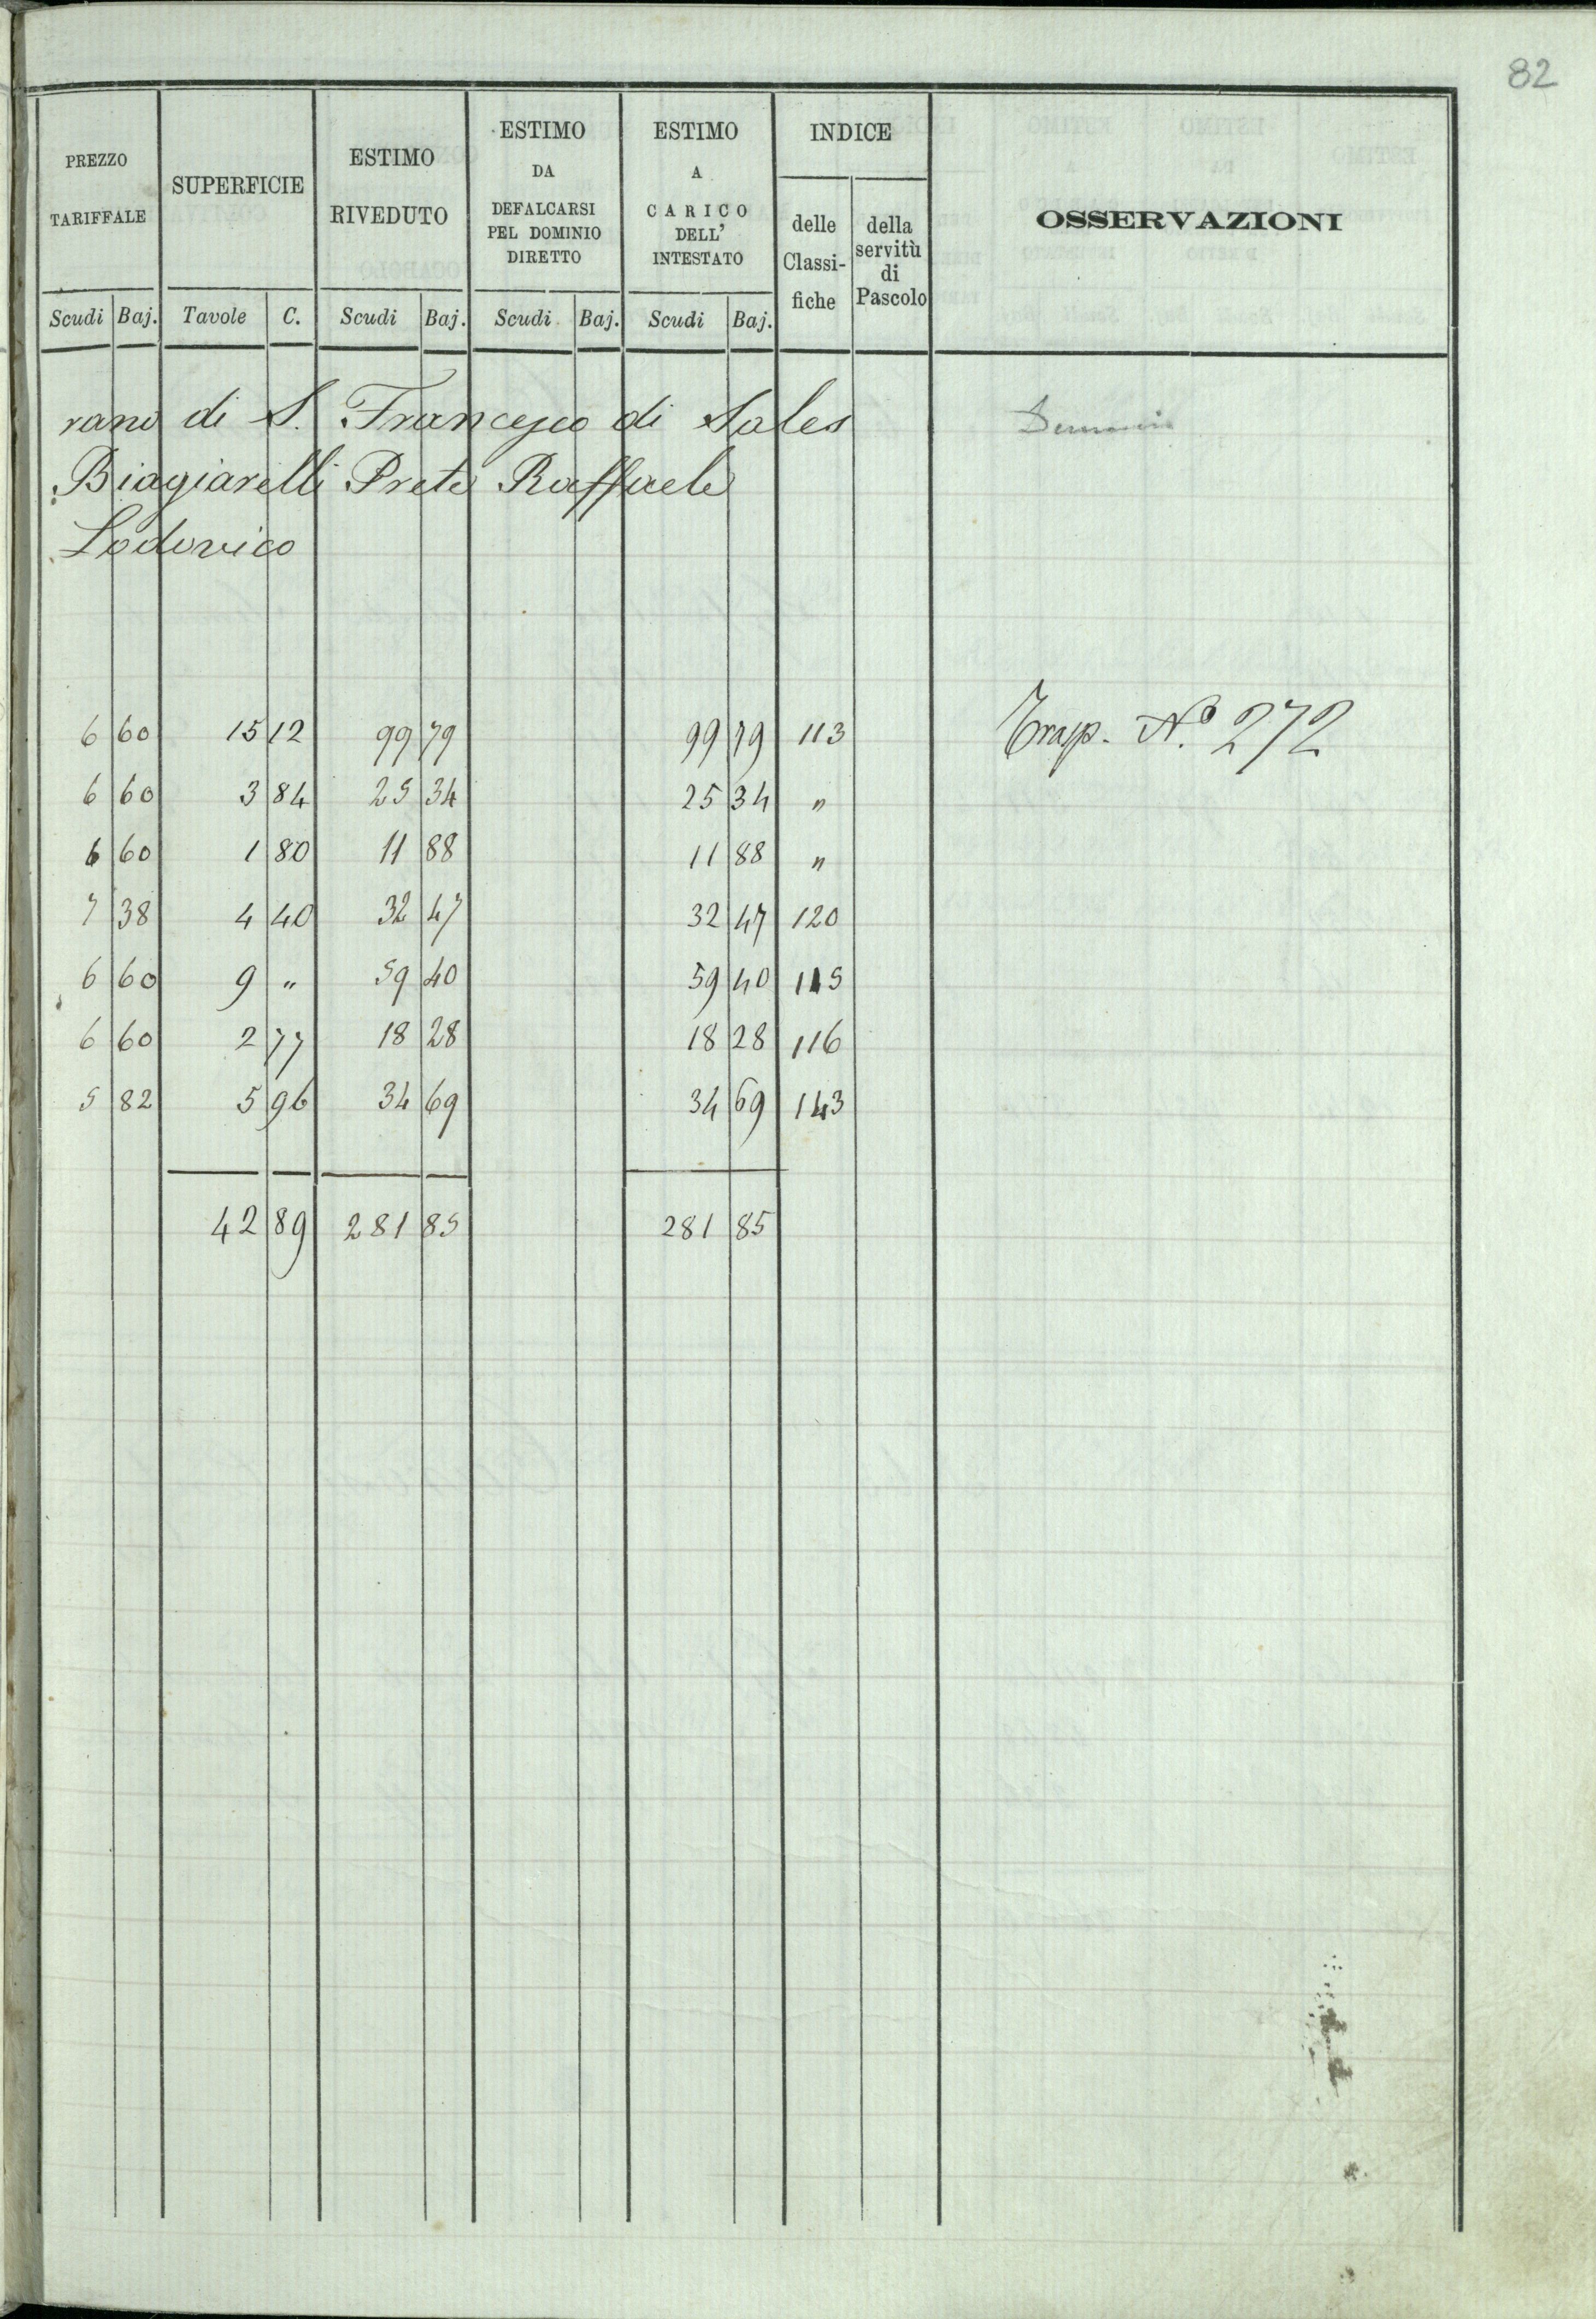 82
PREZZO TARIFFALE | SUPERFICIE | ESTIMO RIVEDUTO | ESTIMO DA DEFALCARSI PEL DOMINIO DIRETTO | ESTIMO A CARICO DELL' INTESTATO | INDICE | OSSERVAZIONI
delle Classifiche | della servitù di Pascolo
Scudi | Baj. | Tavole | C. | Scudi | Baj. | Scudi | Baj. | Scudi | Baj.
rano di S. Francesco di Sales
Biagiarelli Prete Raffaele
Lodovico
6 60 15 12 99 79 99 79 113 Trasp. N.º 272
6 60 3 84 25 34 25 34 "
6 60 1 80 11 88 11 88 "
7 38 4 40 32 47 32 47 120
6 60 9 " 59 40 59 40 115
6 60 2 77 18 28 18 28 116
5 82 5 96 34 69 34 69 143
42 89 281 85 281 85